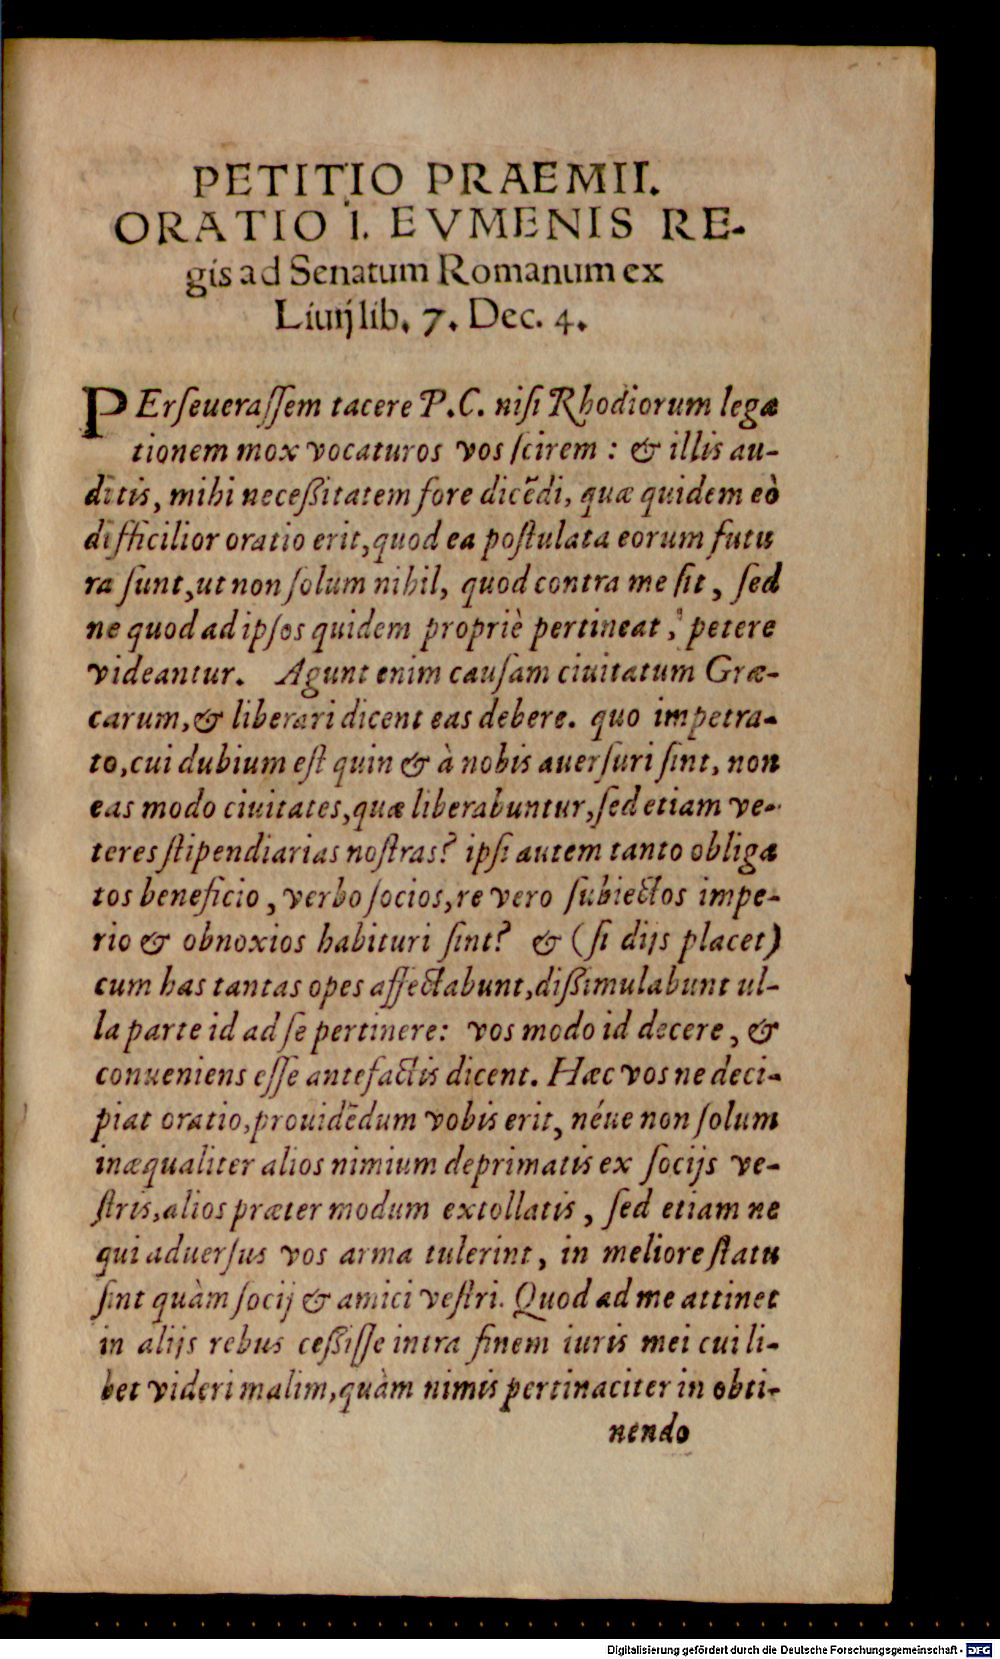 PETITIO PRAEMII.
ORATIO I. EVMENIS RE-
gis ad Senatum Romanum ex
Liuij lib. 7. Dec. 4.
PErſeueraſſem tacere P.C. niſi Rhodiorum lega
tionem mox vocaturos vos ſcirem : & illis au-
ditis, mihi neceßitatem fore dicẽdi, quæ quidem eò
difficilior oratio erit, quod ea poſtulata eorum futu
ra ſunt, ut non ſolum nihil, quod contra me ſit, ſed
ne quod ad ipſos quidem propriè pertineat, petere
videantur. Agunt enim cauſam ciuitatum Græ-
carum, & liberari dicent eas debere. quo impetra-
to, cui dubium eſt quin & à nobis auerſuri ſint, non
eas modo ciuitates, quæ liberabuntur, ſed etiam ve-
teres ſtipendiarias noſtras? ipſi autem tanto obliga
tos beneficio, verbo ſocios, re vero ſubiectos impe-
rio & obnoxios habituri ſint? & (ſi dijs placet)
cum has tantas opes affectabunt, dißimulabunt ul-
la parte id ad ſe pertinere: vos modo id decere, &
conueniens eſſe antefactis dicent. Hæc vos ne deci-
piat oratio, prouidẽdum vobis erit, néue non ſolum
inæqualiter alios nimium deprimatis ex ſocijs ve-
ſtris, alios præter modum extollatis, ſed etiam ne
qui aduerſus vos arma tulerint, in meliore ſtatu
ſint quàm ſocij & amici veſtri. Quod ad me attinet
in alijs rebus ceßiſſe intra finem iuris mei cui li-
bet videri malim, quàm nimis pertinaciter in obti-
nendo
Digitalisierung gefördert durch die Deutsche Forschungsgemeinschaft - DFG